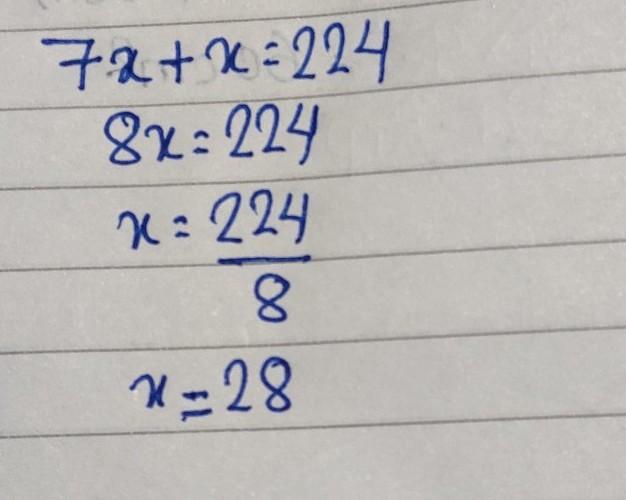 7x + x = 224
8x = 224
x = 224
8
x = 28